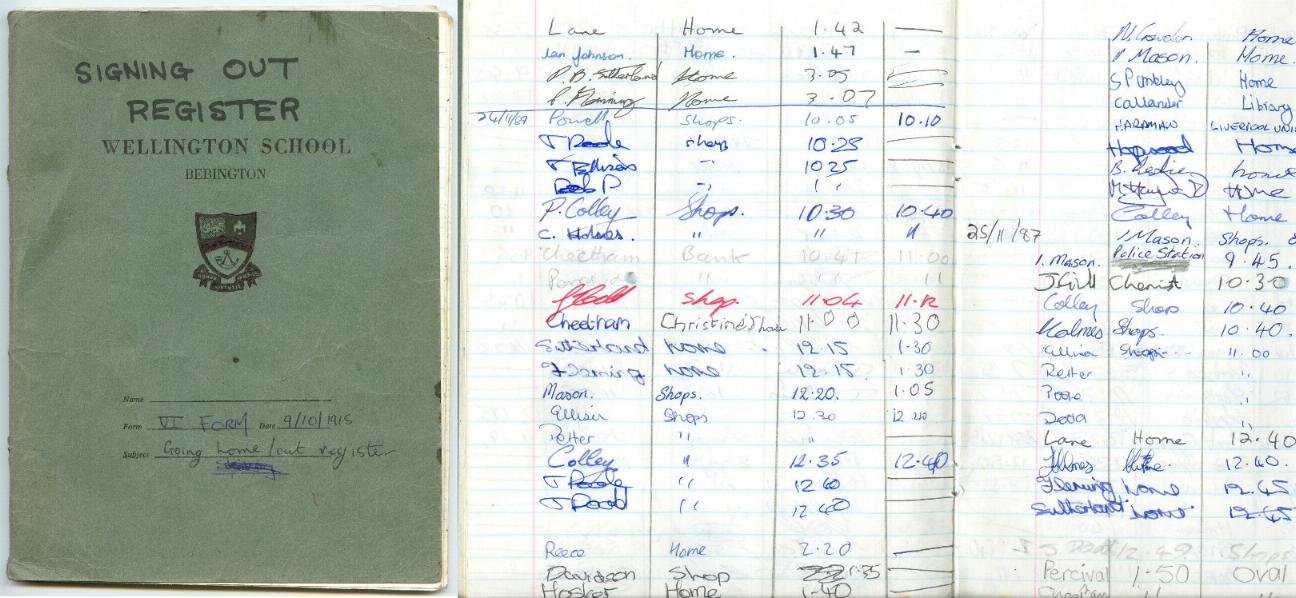 SIGNING OUT
REGISTER
WELLINGTON SCHOOL
BEBINGTON
Name
Form VI FORM Date 9/10/1915
Subject Going home/out register
Lane Home 1.42 —
Ian Johnson. Home. 1.47 —
P.B. Sutherland Home 3.05
P. Flemming Home 3.07
24/11/87 Powell Shops. 10.05 10.10
T Poole shop 10.25
T Ellison " 10 25
P. Colley Shop. 10.30 10.40
C. Holmes. " " "
Cheetham Bank 10.45 11.00
" "
shop. 11.04 11.12
Cheetham Christine's house 11.00 11.30
Sutherland home 12.15 1.30
Flemming home 12.15 1.30
Mason. Shops. 12.20. 1.05
Ellison Shops 12.30
Reiter " "
Colley " 12.35 12.40
T Poole " 12 40
T Dodd " 12 40
Reece Home 2.20 —
Davidson Shop 1.35
Hosker Home 1-40
N. Croydon Home
P Mason. Home.
S Pumbley Home
Callander Library
HARDMAN LIVERPOOL UNI
Hopwood Home
B. home
Home
Colley Home
25/11/87 I Mason. Shops.
I. Mason. Police Station 9.45.
J Gill Chemist 10.30
Colley Shop 10.40
Holmes Shops. 10.40.
Ellison Shops 11.00
Reiter "
Poole "
Dodd "
Lane Home 12.40
Holmes Home. 12.40.
Flemming home 12.45
Sutherland home 12.45
Shops
Percival 1-50 Oval